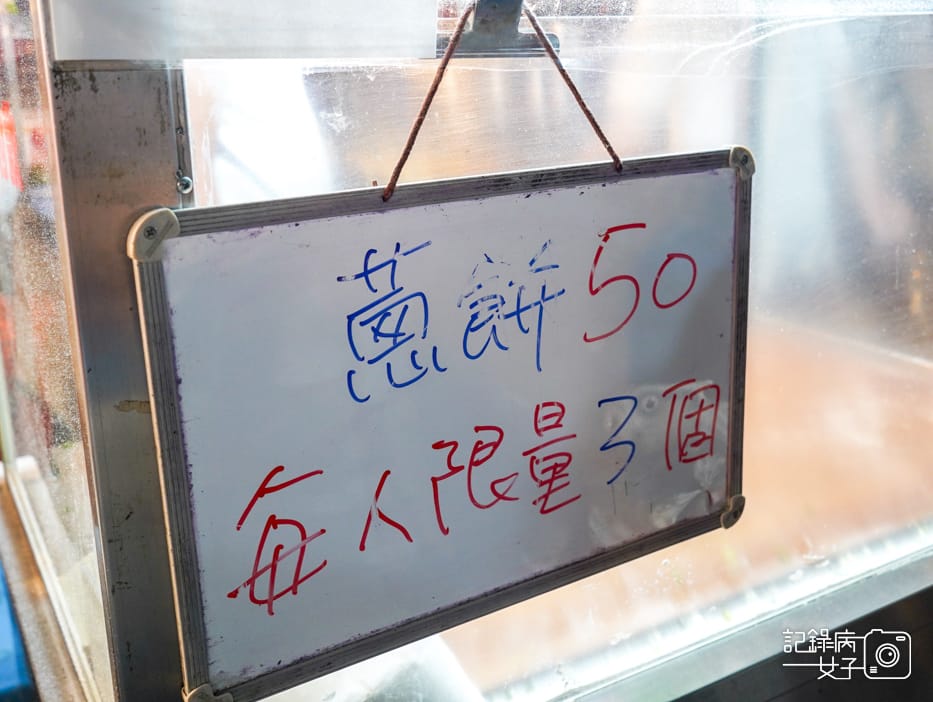 蔥餅50
每人限量3個
記錄病
女子